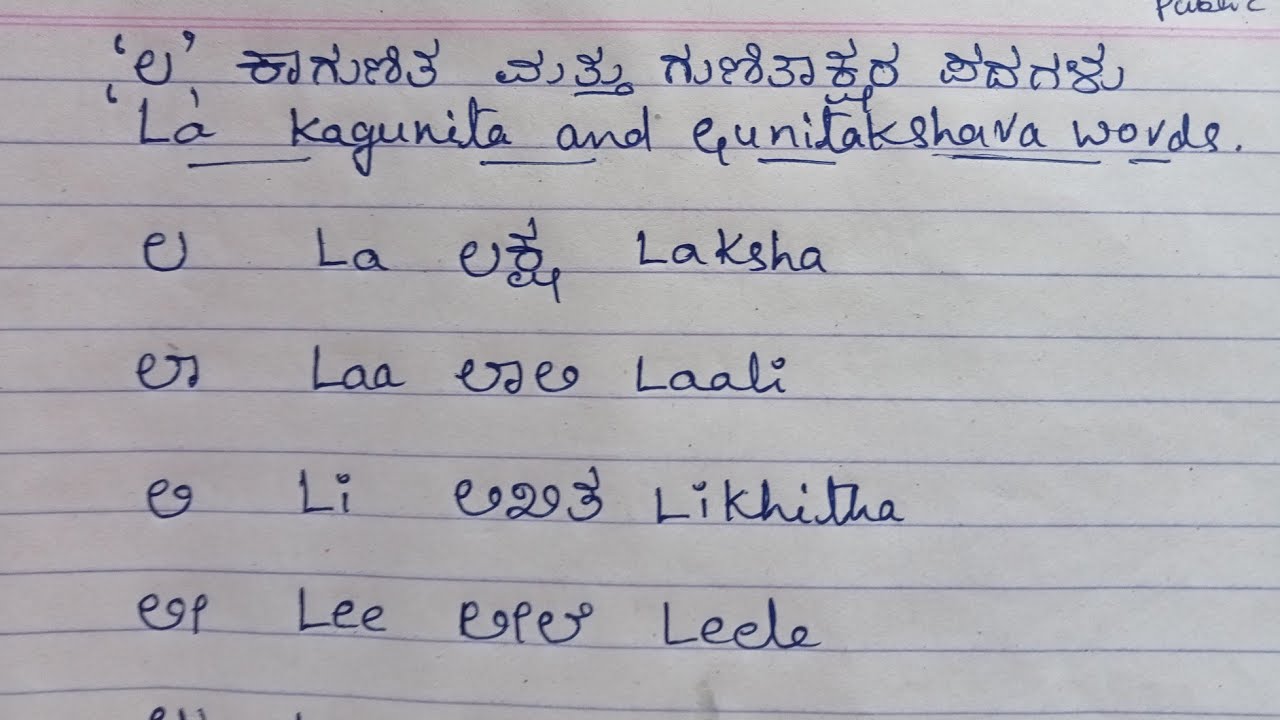 Public
‘ಲ’ ಕಾಗುಣಿತ ಮತ್ತು ಗುಣಿತಾಕ್ಷರ ಪದಗಳು
‘La’ kagunita and gunitakshara words.
ಲ La ಲಕ್ಷ Laksha
ಲಾ Laa ಲಾಲಿ Laali
ಲಿ Li ಲಿಖಿತ Likhitha
ಲೀ Lee ಲೀಲೆ Leele